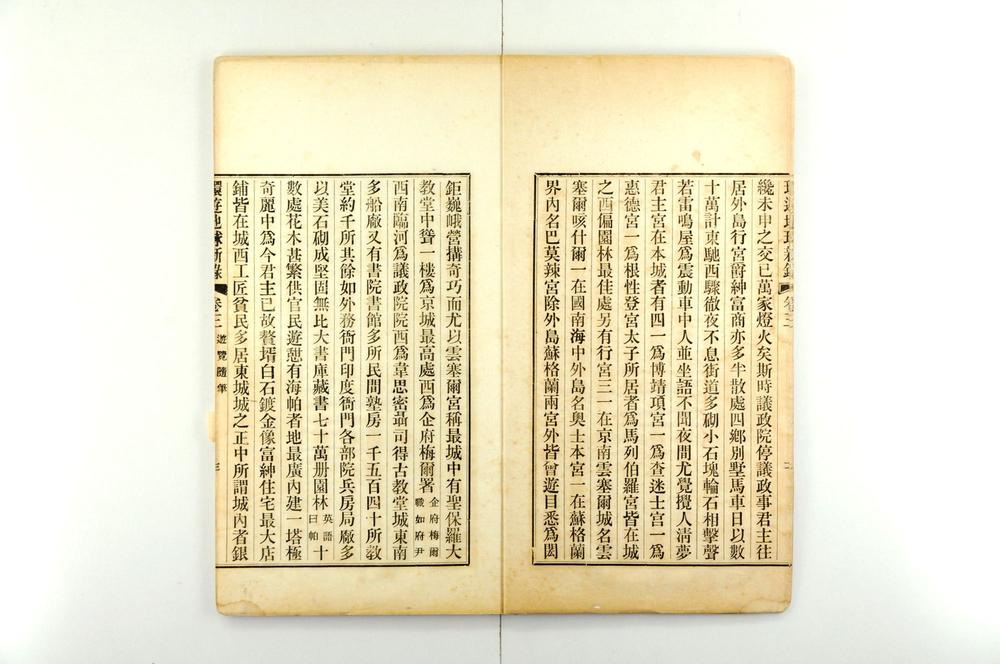 環遊地球新錄 卷三
纔未申之交已萬家燈火矣斯時議政院停議政事君主往
居外島行宮爵紳富商亦多半散處四鄉別墅馬車日以數
十萬計東馳西驟徹夜不息街道多砌小石塊輪石相擊聲
若雷鳴屋爲震動車中人並坐語不聞夜間尤覺攪人淸夢
君主宮在本城者有四一爲博靖項宮一爲查迷士宮一爲
惠德宮一爲根性登宮太子所居者爲馬列伯羅宮皆在城
之西偏園林最佳處另有行宮三一在京南雲塞爾城名雲
塞爾咳什爾一在國南海中外島名奧士本宮一在蘇格蘭
界內名巴莫辣宮除外島蘇格蘭兩宮外皆曾遊目悉爲閎
鉅巍峨營搆奇巧而尤以雲塞爾宮稱最城中有聖保羅大
教堂中聳一樓爲京城最高處西爲企府梅爾署企府梅爾職如府尹
西南臨河爲議政院院西爲韋思密聶司得古教堂城東南
多船廠又有書院書館多所民間塾房一千五百四十所教
堂約千所其餘如外務衙門印度衙門各部院兵房局廠多
以美石砌成堅固無比大書庫藏書七十萬册園林英語曰帕十
數處花木甚繁供官民遊憩有海帕者地最廣內建一塔極
奇麗中爲今君主已故贅壻白石鍍金像富紳住宅最大店
鋪皆在城西工匠貧民多居東城城之正中所謂城內者銀
環遊地球新錄 卷三 遊覽隨筆 三